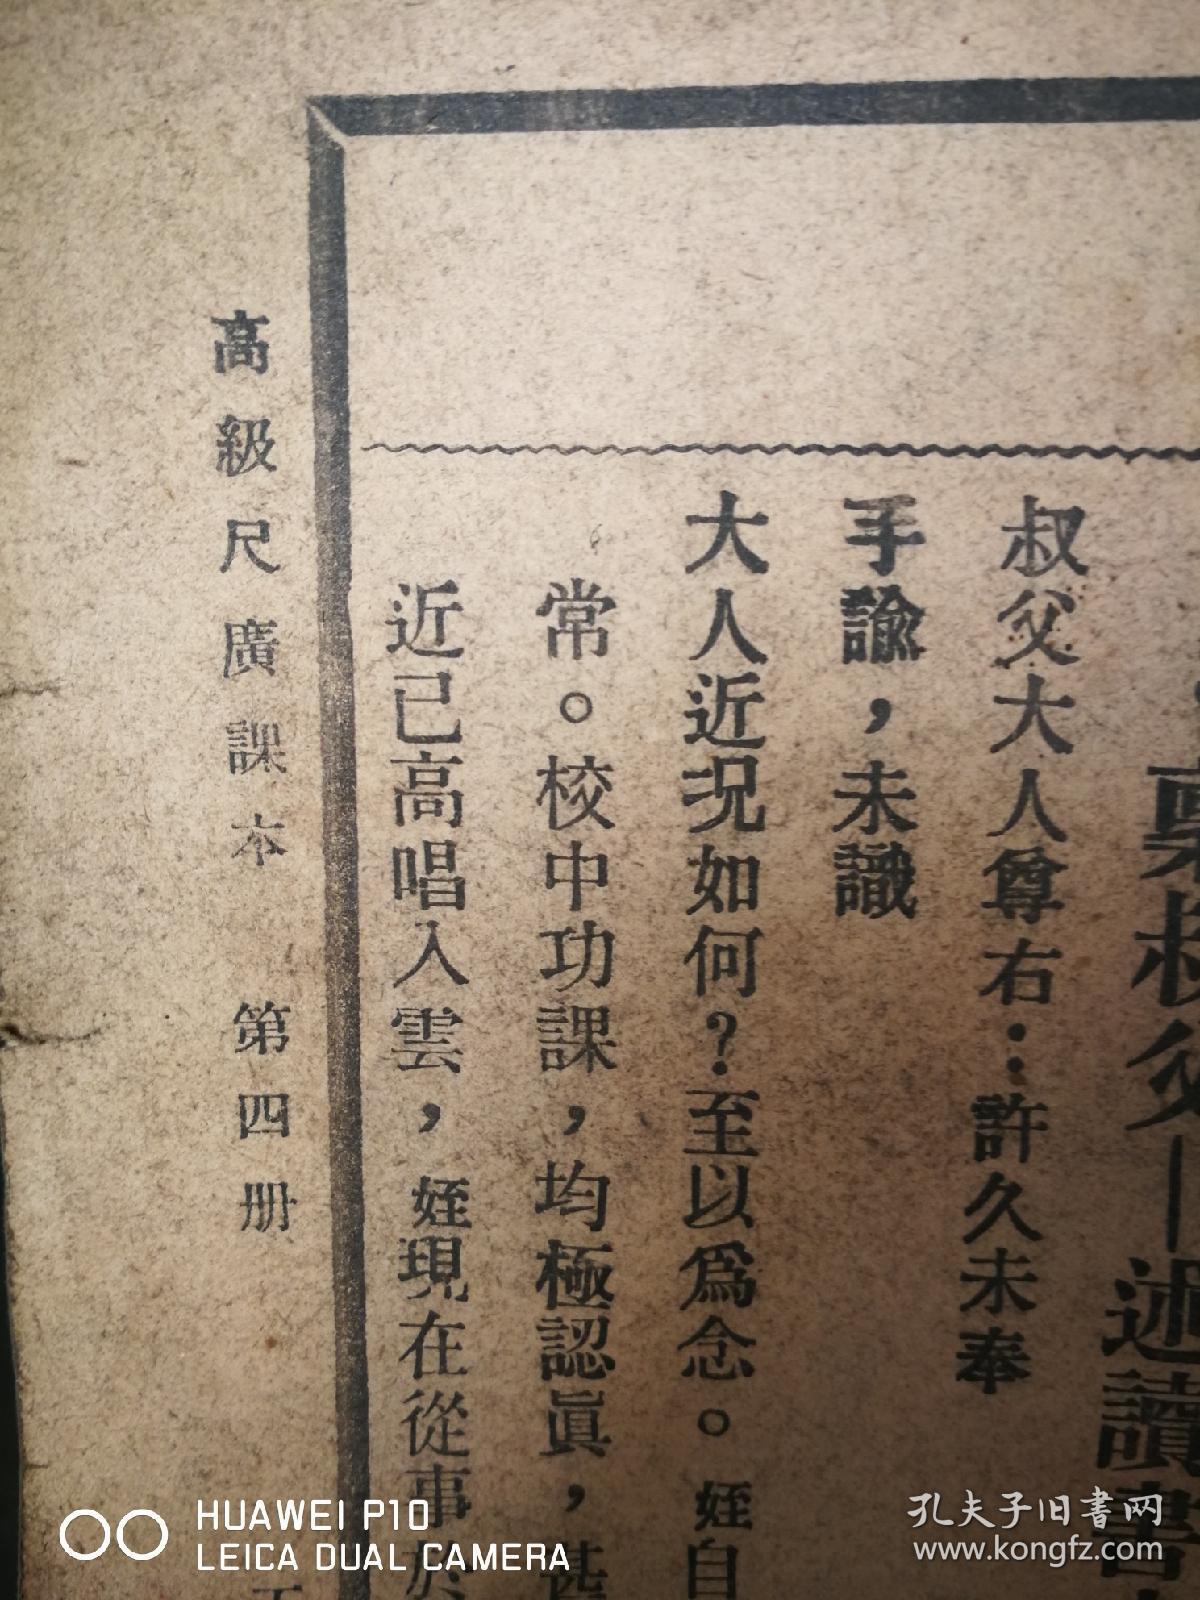 稟叔父—述讀書
叔父大人尊右：許久未奉
手諭，未識
大人近況如何？至以爲念。姪自
常。校中功課，均極認眞，甚
近已高唱入雲，姪現在從事於
高級尺牘課本 第四册
HUAWEI P10
LEICA DUAL CAMERA
孔夫子旧书网
www.kongfz.com